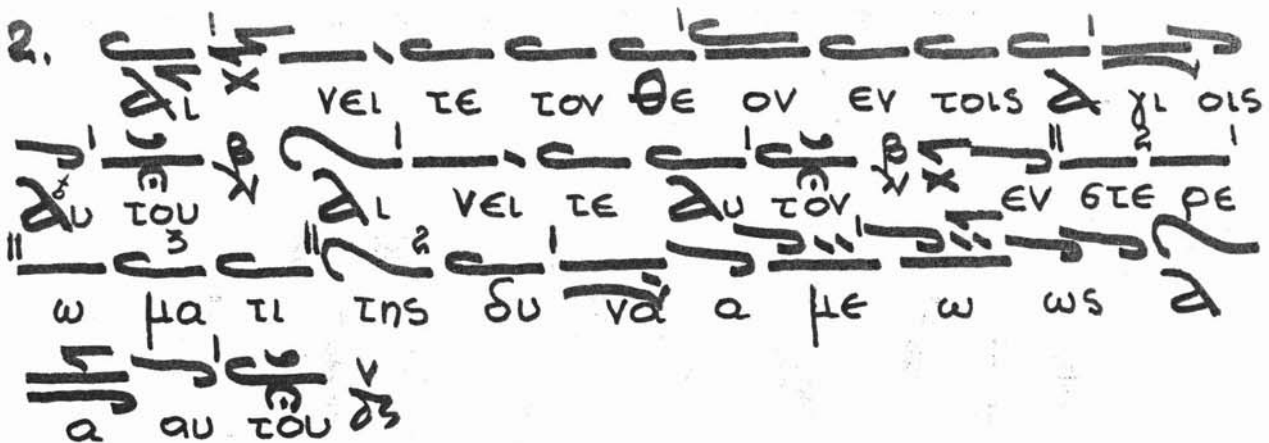 2.
αι νει τε τον θε ον εν τοις α γι οις
αυ του αι νει τε αυ τον εν στε ρε
ω μα τι της δυ να α με ω ως α
α αυ του